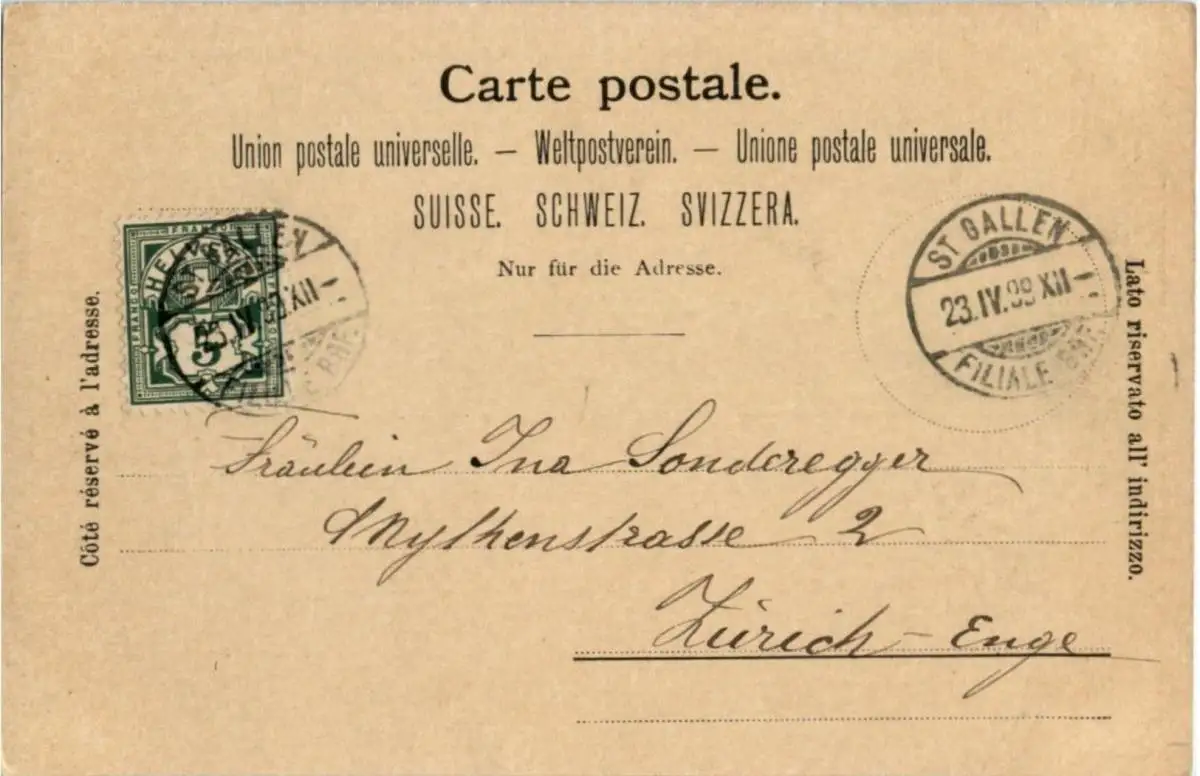 Carte postale.
Union postale universelle. — Weltpostverein. — Unione postale universale.
SUISSE. SCHWEIZ. SVIZZERA.
Nur für die Adresse.
Côté réservé à l'adresse.
FRANCO
HELVETIA
5
ST GALLEN
23.IV.99 XII
FILIALE
Lato riservato all' indirizzo.
Fräulein Ina Sonderegger
Mythenstrasse 2
Zürich – Enge